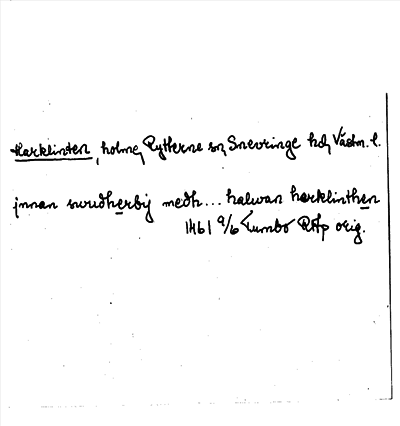 Harklinten, holme, Rytterne sn, Snevringe hd, Västm. l.
jnnan swudherbij medh... halwan harklinthen
1461 9/6 Tumbo RAp orig.